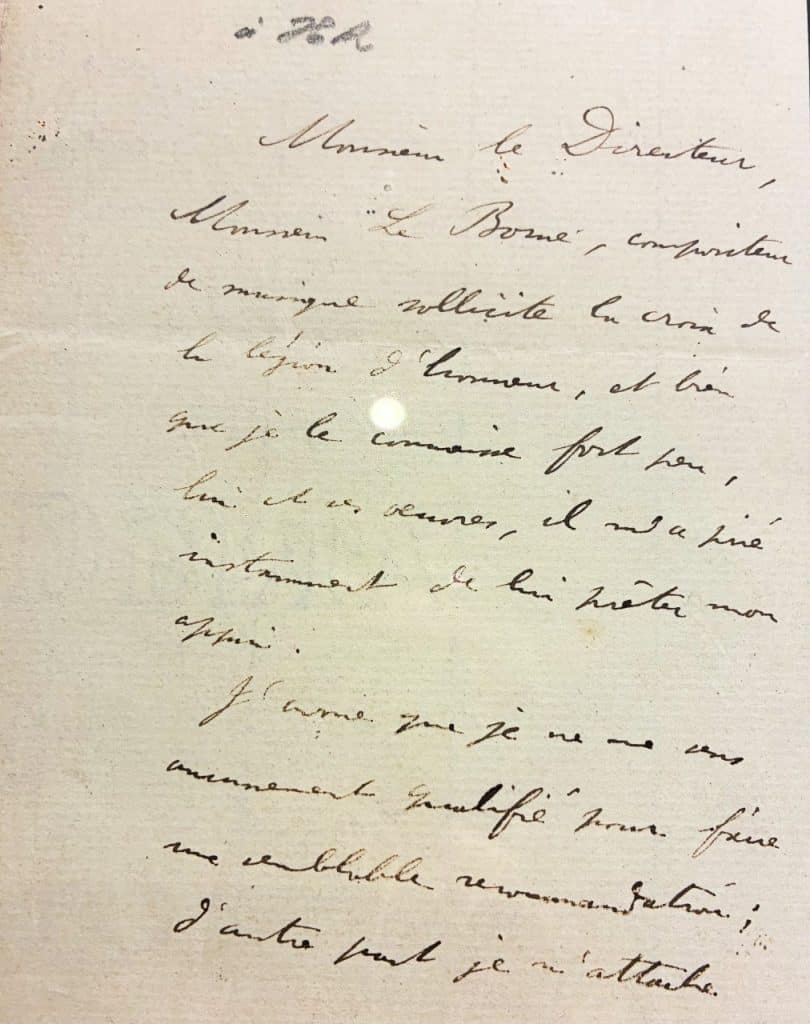 à
Monsieur le Directeur,
Monsieur Le Borne, compositeur
de musique sollicite la croix de
la légion d'honneur, et bien
que je le connaisse fort peu,
lui et ses œuvres, il m'a prié
instamment de lui prêter mon
appui.
J'avoue que je ne me sens
aucunement qualifié pour faire
une semblable recommandation ;
d'autre part je n'attache